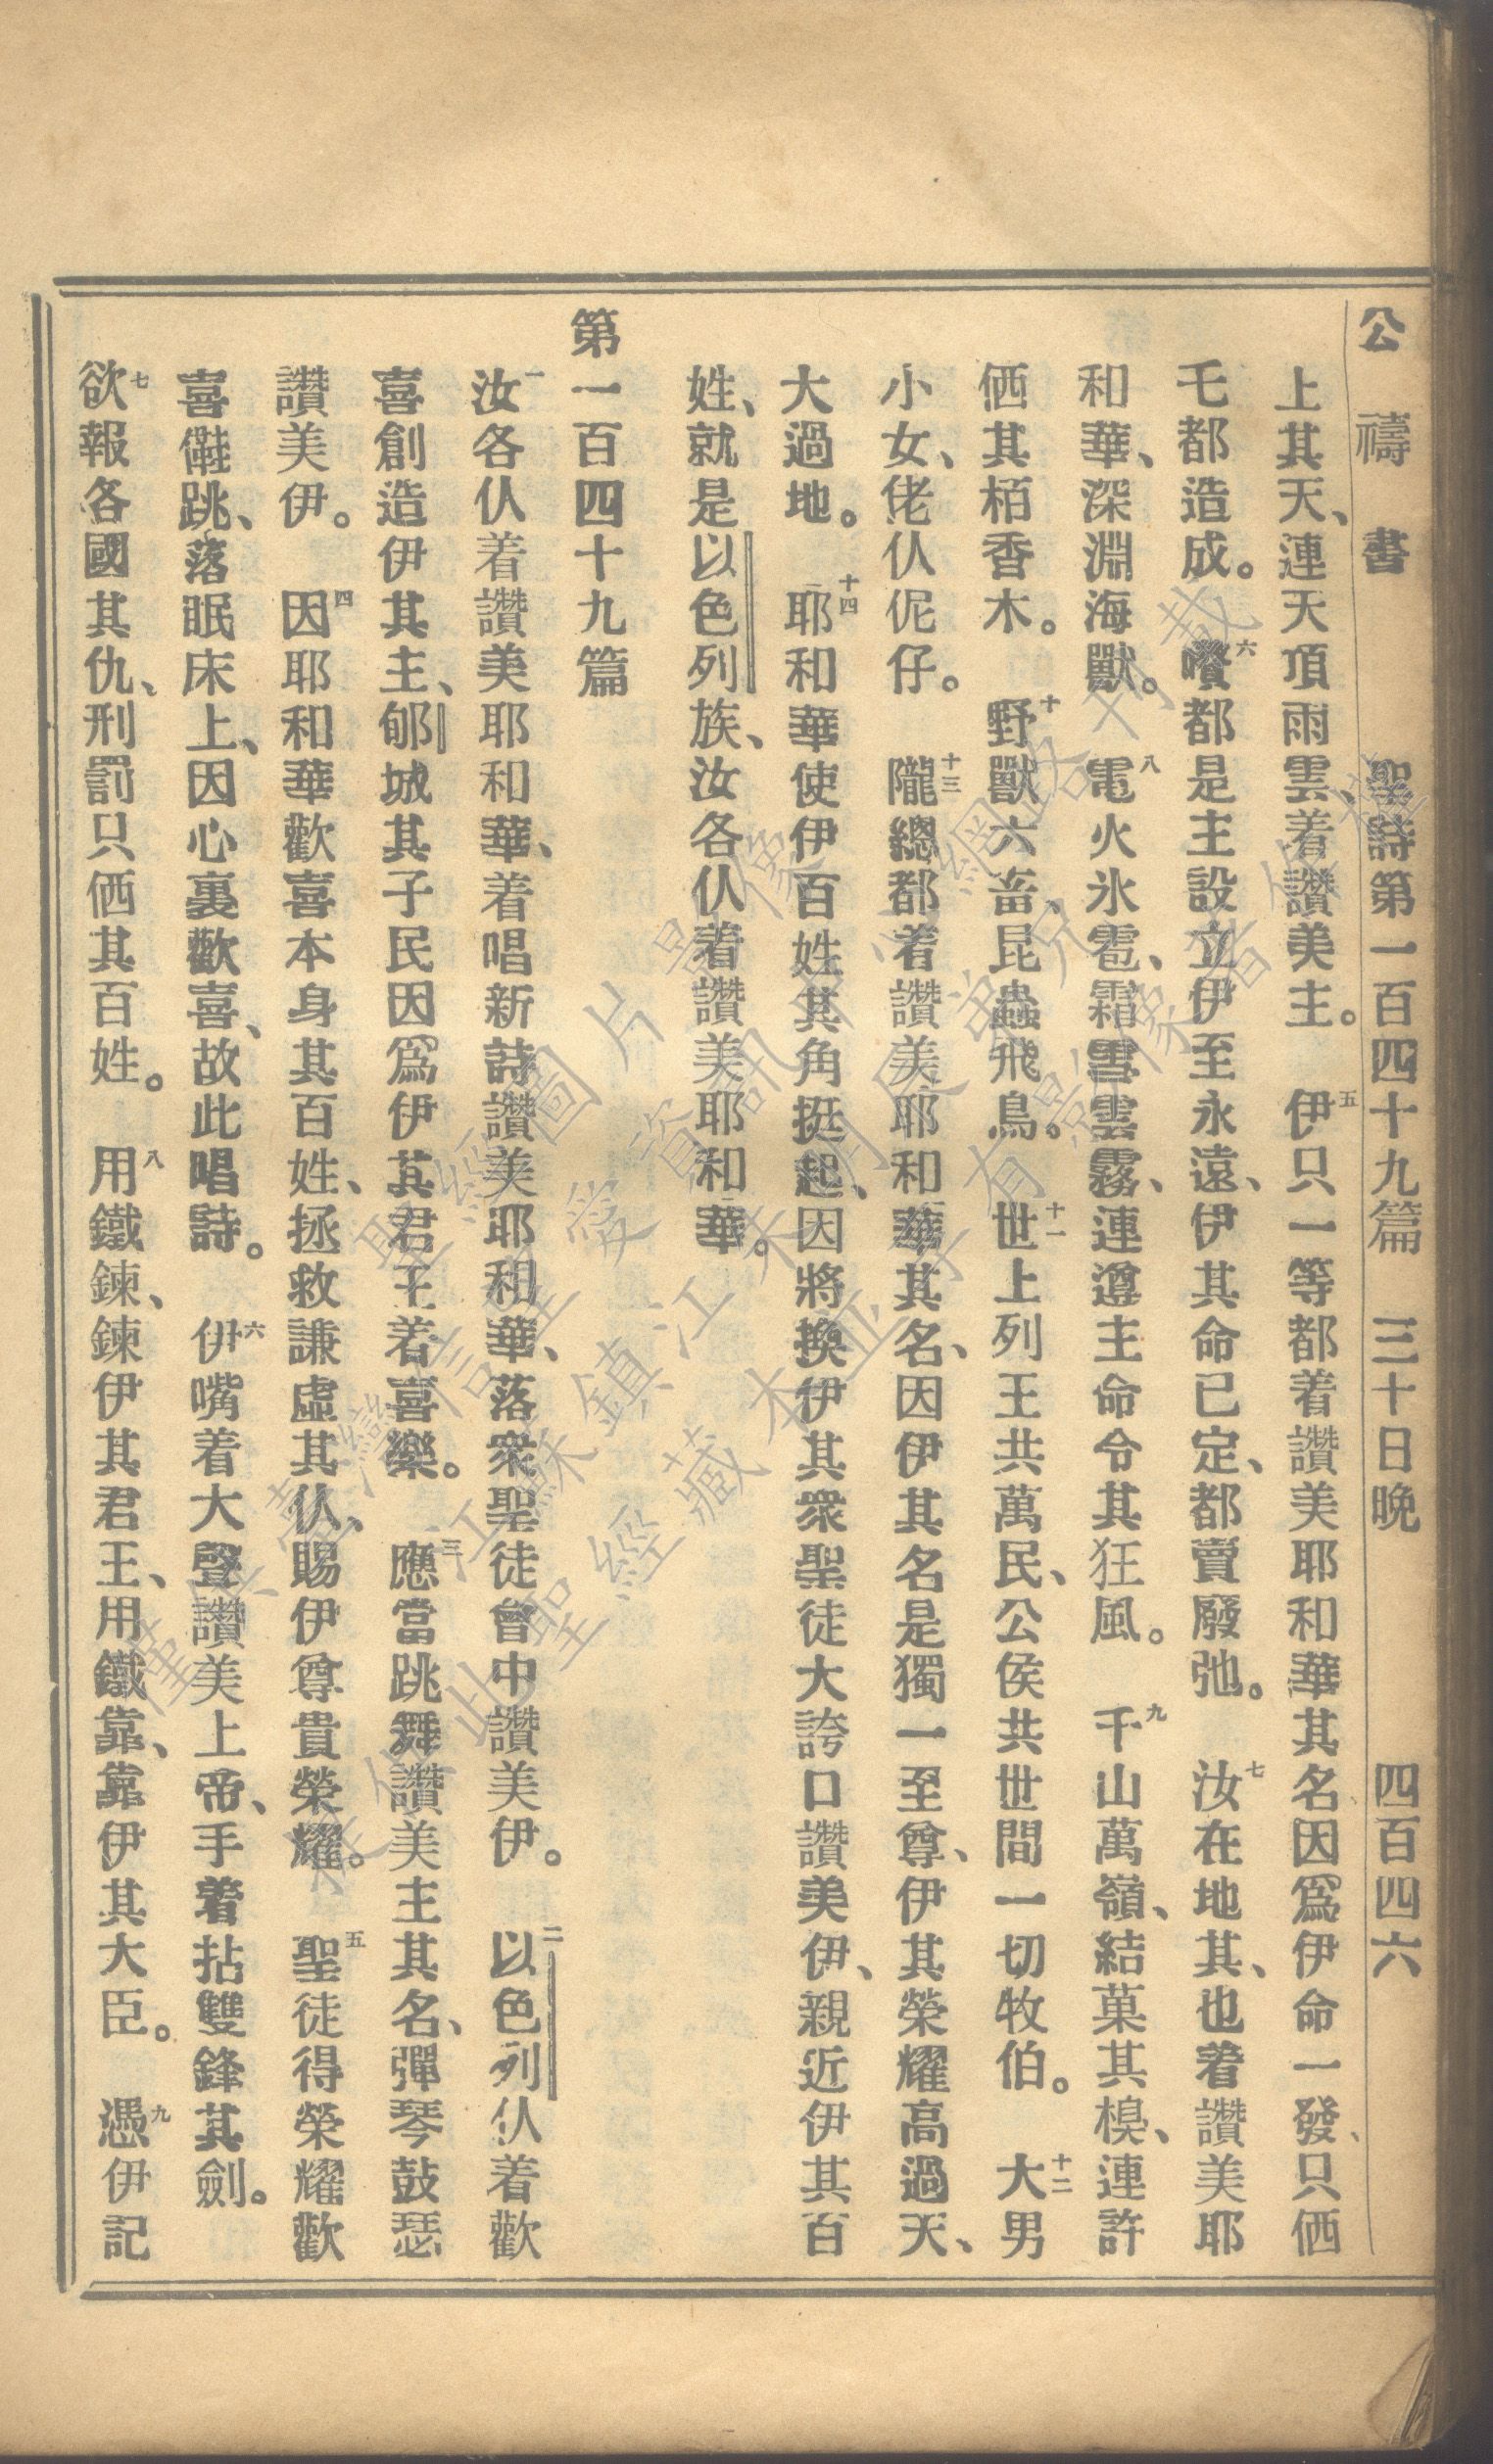 公禱書 聖詩第一百四十九篇 三十日晚 四百四六
上其天、連天頂雨雲、着讚美主。 五伊只一等都着讚美耶和華其名因爲伊命一發、只㑚
乇都造成。 六嚽都是主設立伊至永遠、伊其命已定、都賣廢弛。 七汝在地其、也着讚美耶
和華、深淵海獸。 八電火氷雹、霜雪雲霧、連遵主命令其狂風。 九千山萬嶺、結菓其樹、連許
㑚其栢香木。 十野獸六畜、昆蟲飛鳥。 十一世上列王共萬民、公侯共世間一切牧伯。 十二大男
小女、佬仈伲仔。 十三隴總都着讚美耶和華其名、因伊其名是獨一至尊、伊其榮耀高過天、
大過地。 十四耶和華使伊百姓其角挺起、因將換伊其衆聖徒大誇口讚美伊、親近伊其百
姓、就是以色列族、汝各仈着讚美耶和華。
第一百四十九篇
一汝各仈着讚美耶和華、着唱新詩讚美耶和華、落衆聖徒會中讚美伊。 二以色列仈着歡
喜創造伊其主、郇城其子民因爲伊其君王着喜樂。 三應當跳舞讚美主其名、彈琴鼓瑟
讚美伊。 四因耶和華歡喜本身其百姓、拯救謙虛其仈、賜伊尊貴榮耀。 五聖徒得榮耀歡
喜儺跳、落眠床上、因心裏歡喜、故此唱詩。 六伊嘴着大聲讚美上帝、手着拈雙鋒其劍。
七欲報各國其仇、刑罰只㑚其百姓。 八用鐵鍊、鍊伊其君王、用鐵靠、靠伊其大臣。 九憑伊記